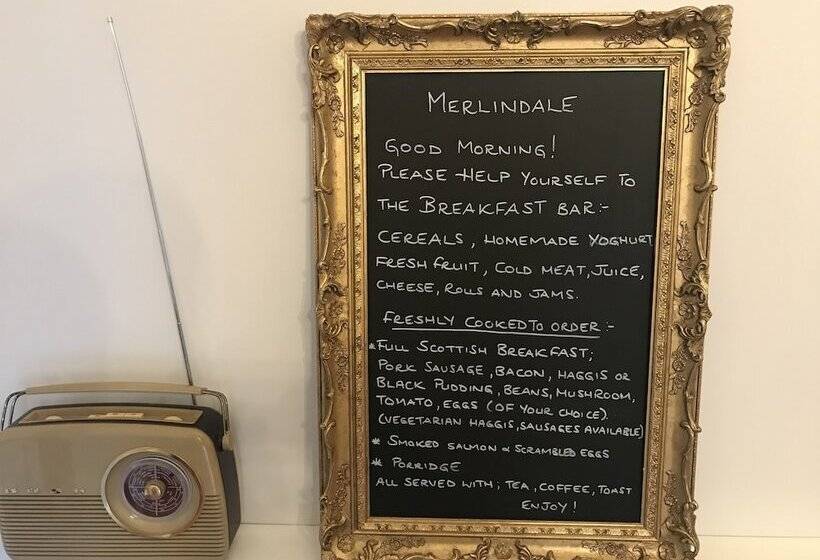 MERLINDALE
GOOD MORNING!
PLEASE HELP YOURSELF TO
THE BREAKFAST BAR:-
CEREALS, HOMEMADE YOGHURT
FRESH FRUIT, COLD MEAT, JUICE,
CHEESE, ROLLS AND JAMS.
FRESHLY COOKED TO ORDER:-
*FULL SCOTTISH BREAKFAST;
PORK SAUSAGE, BACON, HAGGIS OR
BLACK PUDDING, BEANS, MUSHROOM,
TOMATO, EGGS (OF YOUR CHOICE).
(VEGETARIAN HAGGIS, SAUSAGES AVAILABLE)
* SMOKED SALMON & SCRAMBLED EGGS
* PORRIDGE
ALL SERVED WITH; TEA, COFFEE, TOAST
ENJOY!